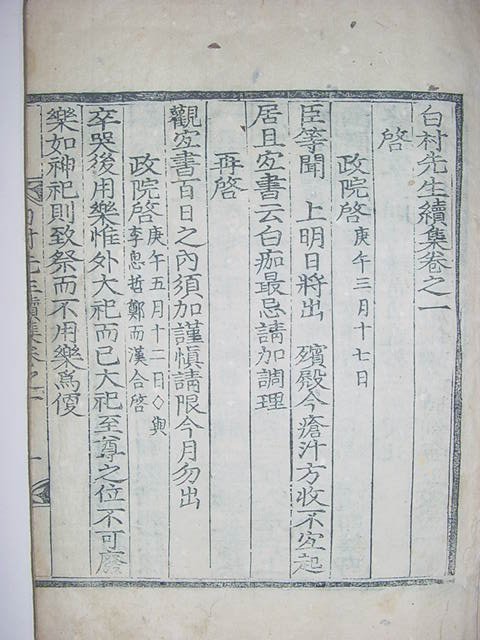 白村先生續集卷之一
啓
政院啓庚午三月十七日
臣等聞 上明日將出 殯殿今瘡汁方收不㝎起
居且㝎書云白痂最忌請加調理
再啓
觀㝎書百日之內須加謹愼請限今月勿出
政院啓庚午五月十二日◇與
李思哲鄭而漢合啓
卒哭後用樂惟外大祀而已大祀至尊之位不可廢
樂如神祀則致祭而不用樂爲便